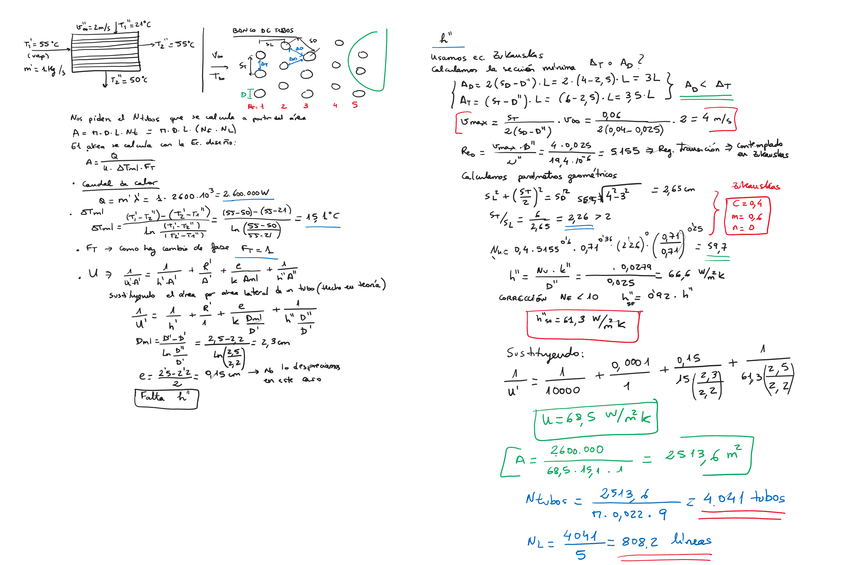 v∞" = 2m/s
T₁" = 21°C
T₁' = 55°C
(vap)
m' = 1 kg/s
T₂' = 55°C
T₂" = 50°C
BANCO DE TUBOS
SL
SD
V∞
T∞
ST
D
AT
AD
AD
Art. 1 2 3 4 5
Nos piden el Ntubos que se calcula a partir del área
A = π.D.L.Nt = π.D.L.(NF.NL)
El área se calcula con la Ec. diseño:
A = Q / (U.ΔTml.FT)
• Caudal de calor
Q = m'λ' = 1.2600.10³ = 2.600.000W
• ΔTml
ΔTml = ((T₁'-T₂")-(T₂'-T₁")) / ln((T₁'-T₂")/(T₂'-T₁")) = ((55-50)-(55-21)) / ln((55-50)/(55-21)) = 15,1°C
• FT → como hay cambio de fase FT = 1
• U → 1/(U'A') = 1/(h'A') + R'/A' + e/(k Aml) + 1/(h"A")
Sustituyendo el área por área lateral de un tubo (hecho en teoría)
1/U' = 1/h' + R'/1 + e/(k Dml/D') + 1/(h" D"/D')
Dml = (D"-D')/(ln D"/D') = (2,5-2,2)/ln(2,5/2,2) = 2,3cm
e = (2'5-2'2)/2 = 0,15cm → No lo despreciamos
en este caso
Falta h"
h"
Usamos ec. Zukauskas
Calculamos la sección mínima AT o AD?
AD = 2(SD-D").L = 2.(4-2,5).L = 3L
AT = (ST-D").L = (6-2,5).L = 3,5.L
AD < AT
Vmax = ST/(2(SD-D")) . V∞ = 0,06/(2(0,04-0,025)) . 2 = 4 m/s
ReD = (Vmax.D")/ν" = (4.0,025)/(19,4.10⁻⁶) = 5.155 ⇒ Reg. Transición ⇒ contemplado
en Zukauskas
Calculamos parámetros geométricos
SL² + (ST/2)² = SD² √(4²-3²) = 2,65cm
ST/SL = 6/2,65 = 2,26 > 2
Zukauskas
C = 0,4
m = 0,6
n = 0
Nu = 0,4.5155^0'6.0,71^0'36.(2'26)^0.(0,71/0,71)^0'25 = 59,7
h" = (Nu.k")/D" = ( . 0,0279)/0,025 = 66,6 W/m²K
CORRECCIÓN NF < 10 h"5F = 0'92.h"
h"5F = 61,3 W/m²K
Sustituyendo:
1/U' = 1/10000 + 0,0001/1 + 0,15/(15(2,3/2,2)) + 1/(61,3(2,5/2,2))
U = 68,5 W/m²K
A = 2600.000/(68,5.15,1.1) = 2513,6 m²
Ntubos = 2513,6/(π.0,022.9) = 4.041 tubos
NL = 4041/5 = 808,2 líneas